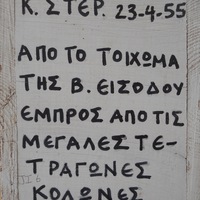 Κ. ΣΤΕΡ. 23-4-55
ΑΠΟ ΤΟ ΤΟΙΧΩΜΑ
ΤΗΣ Β. ΕΙΣΟΔΟΥ
ΕΜΠΡΟΣ ΑΠΟ ΤΙΣ
ΜΕΓΑΛΕΣ ΤΕ-
ΤΡΑΓΩΝΕΣ
ΚΟΛΩΝΕΣ